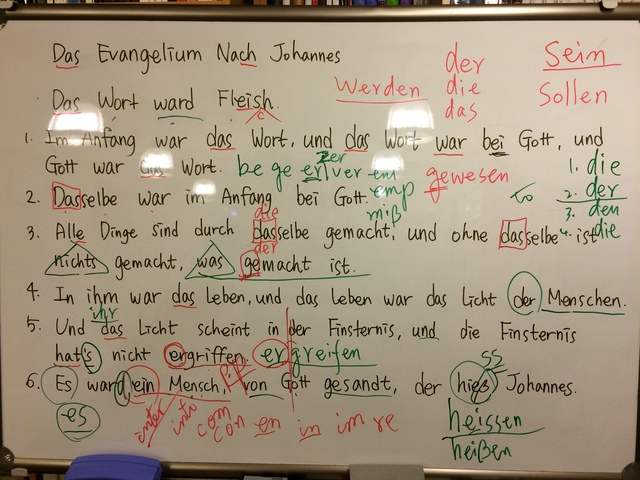 Das Evangelium Nach Johannes
der
die
das
Sein
Sollen
Werden
Das Wort ward Fleish.
c
1. Im Anfang war das Wort, und das Wort war bei Gott, und
Gott war das Wort.
be ge er ver ent
zer
emp
miß
gewesen
1. die
2. der
3. den
4. die
2. Dasselbe war im Anfang bei Gott.
die
3. Alle Dinge sind durch dasselbe gemacht, und ohne dasselbe ist
der
nichts gemacht, was gemacht ist.
4. In ihm war das Leben, und das Leben war das Licht der Menschen.
ihr
5. Und das Licht scheint in der Finsternis, und die Finsternis
hat's nicht ergriffen. ergreifen
ss
6. Es ward ein Mensch, von Gott gesandt, der hieß Johannes.
es
enter into com con en in im re
heissen
heißen